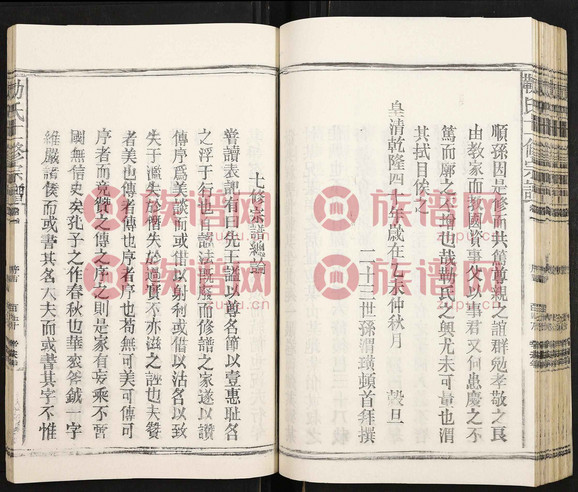 順孫因是修而共篤尊親之誼群勉孝敬之良
由教家而教國資事父以事君又何患慶之不
篤而廓之不增也哉勒氏之興尤未可量也渭
其拭目俟之
皇清乾隆四十年歲在乙未仲秋月 穀旦
二十三世孫渭璜頓首拜撰
十修宗譜總論
嘗讀表記有曰先王諡以尊名節以壹惠耻名
之浮于行也自諡法既嚴而修譜之家遂以讚
傳序為美談而或借以射利或借以沽名以致
失于濫失於僭失於過實不亦滋之誣也夫贊
者美也傳者傳也序者序也苟無可美可傳可
序者而見贊之傳之序之則是家有妄乘不啻
國無信史矣孔子之作春秋也華袞斧鉞一字
維嚴諸侯而或書其名大夫而或書其字不惟
氏十修宗譜
族谱网
zupu.cn
族谱网
zupu.cn
族谱网
zupu.cn
族谱网
zupu.cn